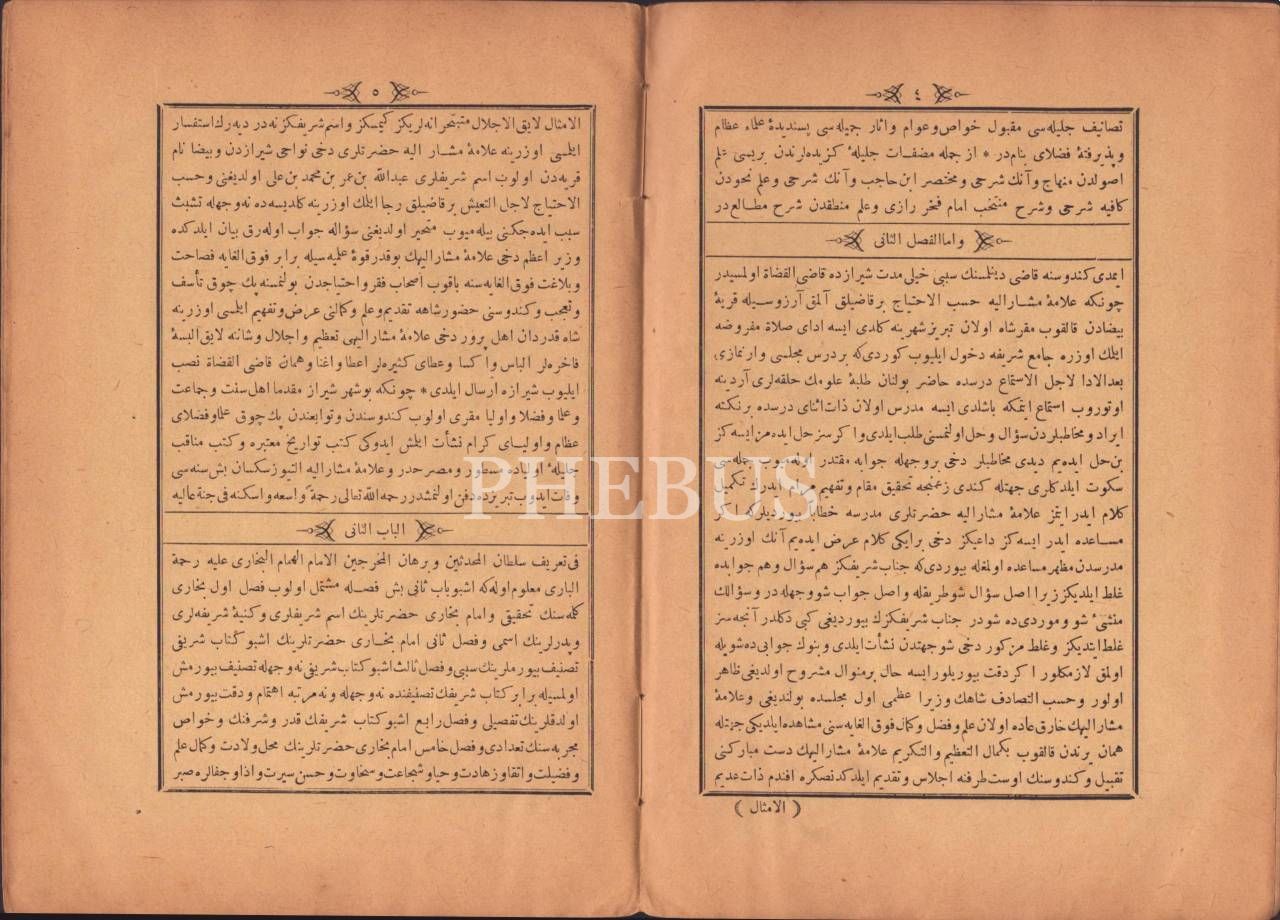 ٤
تصانیف جلیله‌سی مقبول خواص وعوام واثار جمیله‌سی پسندیدهٔ علماء عظام
وپذیرفتهٔ فضلای بنام‌در * از جمله مصنفات جلیلهٔ کزیده‌لرندن بریسی علم
اصولدن منهاج وآنك شرحی ومختصر ابن حاجب وآنك شرحی وعلم نحودن
کافیه شرحی وشرح منتخب امام فخر رازی وعلم منطقدن شرح مطالع‌در
واما الفصل الثانی
ایمدی کندوسنه قاضی دینلمسنك سببی خیلی مدت شیرازده قاضی القضاة اولمسیدر
چونکه علامهٔ مشار الیه حسب الاحتیاج برقاضیلق آلمق آرزوسیله قریهٔ
بیضادن قالقوب مقر شاه اولان تبریز شهرینه کلدی ایسه ادای صلاة مفروضه
ایتمك اوزره جامع شریفه دخول ایلیوب کوردی که بردرس مجلسی وار نمازی
بعد الادا لاجل الاستماع درسده حاضر بولنان طلبهٔ علومك حلقه‌لری آردینه
اوتوروب استماع ایتمکه باشلدی ایسه مدرس اولان ذات اثنای درسده برنکته
ایراد ومخاطبلردن سؤال وحل اولنمسنی طلب ایلدی واکر سز حل ایده‌مز ایسه‌کز
بن حل ایده‌یم دیدی مخاطبلر دخی بروجهله جوابه مقتدر اوله‌میوب جمله‌سی
سکوت ایلدکلری جهتله کندی زعمنجه تحقیق مقام وتفهیم مرام ایدرك تکمیل
کلام ایدر ایتمز علامهٔ مشار الیه حضرتلری مدرسه خطابا بیوردیلر که اکر
مساعده ایدر ایسه‌کز داعیکز دخی برایکی کلام عرض ایده‌یم آنك اوزرینه
مدرسدن مظهر مساعده اولمغله بیوردی که جناب شریفکز هم سؤال وهم جوابده
غلط ایلدیکز زیرا اصل سؤال شو طریقله واصل جواب شو وجهله‌در وسؤالك
منشئ شو وموردی ده شودر جناب شریفکزك بیوردیغی کبی دکلدر آنجه سز
غلط ایتدیکز وغلط مزکور دخی شو جهتدن نشأت ایلدی وبنوك جوابی ده شویله
اولمق لازمکلور اکر دقت بیوریلور ایسه حال بر منوال مشروح اولدیغی ظاهر
اولور وحسب التصادف شاهك وزیر اعظمی اول مجلسده بولندیغی وعلامهٔ
مشار الیهك خارق عاده اولان علم وفضل وکمال فوق الغایه‌سنی مشاهده ایلدیکی جهتله
همان یرندن قالقوب بکمال التعظیم والتکریم علامهٔ مشار الیهك دست مبارکنی
تقبیل وکندوسنك اوست طرفنه اجلاس وتقدیم ایلدکدنصکره افندم ذات عدیم
( الامثال )
٥
الامثال لایق الاجلال متبحرانه‌لریکز کیمسکز واسم شریفکز نه‌در دیه‌رك استفسار
ایلمسی اوزرینه علامهٔ مشار الیه حضرتلری دخی نواحی شیرازدن وبیضا نام
قریه‌دن اولوب اسم شریفلری عبدالله بن عمر بن محمد بن علی اولدیغنی وحسب
الاحتیاج لاجل التعیش برقاضیلق رجا ایتمك اوزرینه کلدیسه‌ده نه وجهله تشبث
سبب ایده‌جکنی بیله‌میوب متحیر اولدیغنی سؤاله جواب اوله‌رق بیان ایلدکده
وزیر اعظم دخی علامهٔ مشار الیهك بوقدر قوهٔ علمیه‌سیله برابر فوق الغایه فصاحت
وبلاغت فوق الغایه‌سنه باقوب اصحاب فقر واحتیاجدن بولنمسنه پك چوق تأسف
وتعجب وکندوسنی حضور شاهه تقدیم وعلم وکمالنی عرض وتفهیم ایلمسی اوزرینه
شاه قدردان اهل پرور دخی علامهٔ مشار الیهی تعظیم واجلال وشاننه لایق البسهٔ
فاخره‌لر الباس واکسا وعطای کثیره‌لر اعطا واغنا وهمان قاضی القضاة نصب
ایلیوب شیرازه ارسال ایلدی * چونکه بوشهر شیراز مقدما اهل سنت وجماعت
وعلما وفضلا واولیا مقری اولوب کندوسندن وتوابعندن پك چوق علما وفضلای
عظام واولیای کرام نشأت ایلمش ایدوکی کتب تواریخ معتبره وکتب مناقب
جلیلهٔ اولیاده مسطور ومصرحدر وعلامهٔ مشار الیه التیوز سکسان بش سنه‌سی
وفات ایدوب تبریزده دفن اولنمشدر رحمه الله تعالی رحمة واسعه واسکنه فی جنة عالیه
الباب الثانی
فی تعریف سلطان المحدثین وبرهان المخرجین الامام الهمام البخاری علیه رحمة
الباری معلوم اوله که اشبو باب ثانی بش فصله مشتمل اولوب فصل اول بخاری
کلمه‌سنك تحقیقی وامام بخاری حضرتلرینك اسم شریفلری وکنیهٔ شریفه‌لری
وپدرلرینك اسمی وفصل ثانی امام بخاری حضرتلرینك اشبو کتاب شریفی
تصنیف بیورملرینك سببی وفصل ثالث اشبو کتاب شریفی نه وجهله تصنیف بیورمش
اولمسیله برابر کتاب شریفك تصنیفنده نه وجهله ونه مرتبه اهتمام ودقت بیورمش
اولدقلرینك تفصیلی وفصل رابع اشبو کتاب شریفك قدر وشرفنك وخواص
مجربه‌سنك تعدادی وفصل خامس امام بخاری حضرتلرینك محل ولادت وکمال علم
وفضیلت واتقا وزهادت وحیا وشجاعت وسخاوت وحسن سیرت واذا وجفالره صبر
PHEBUS